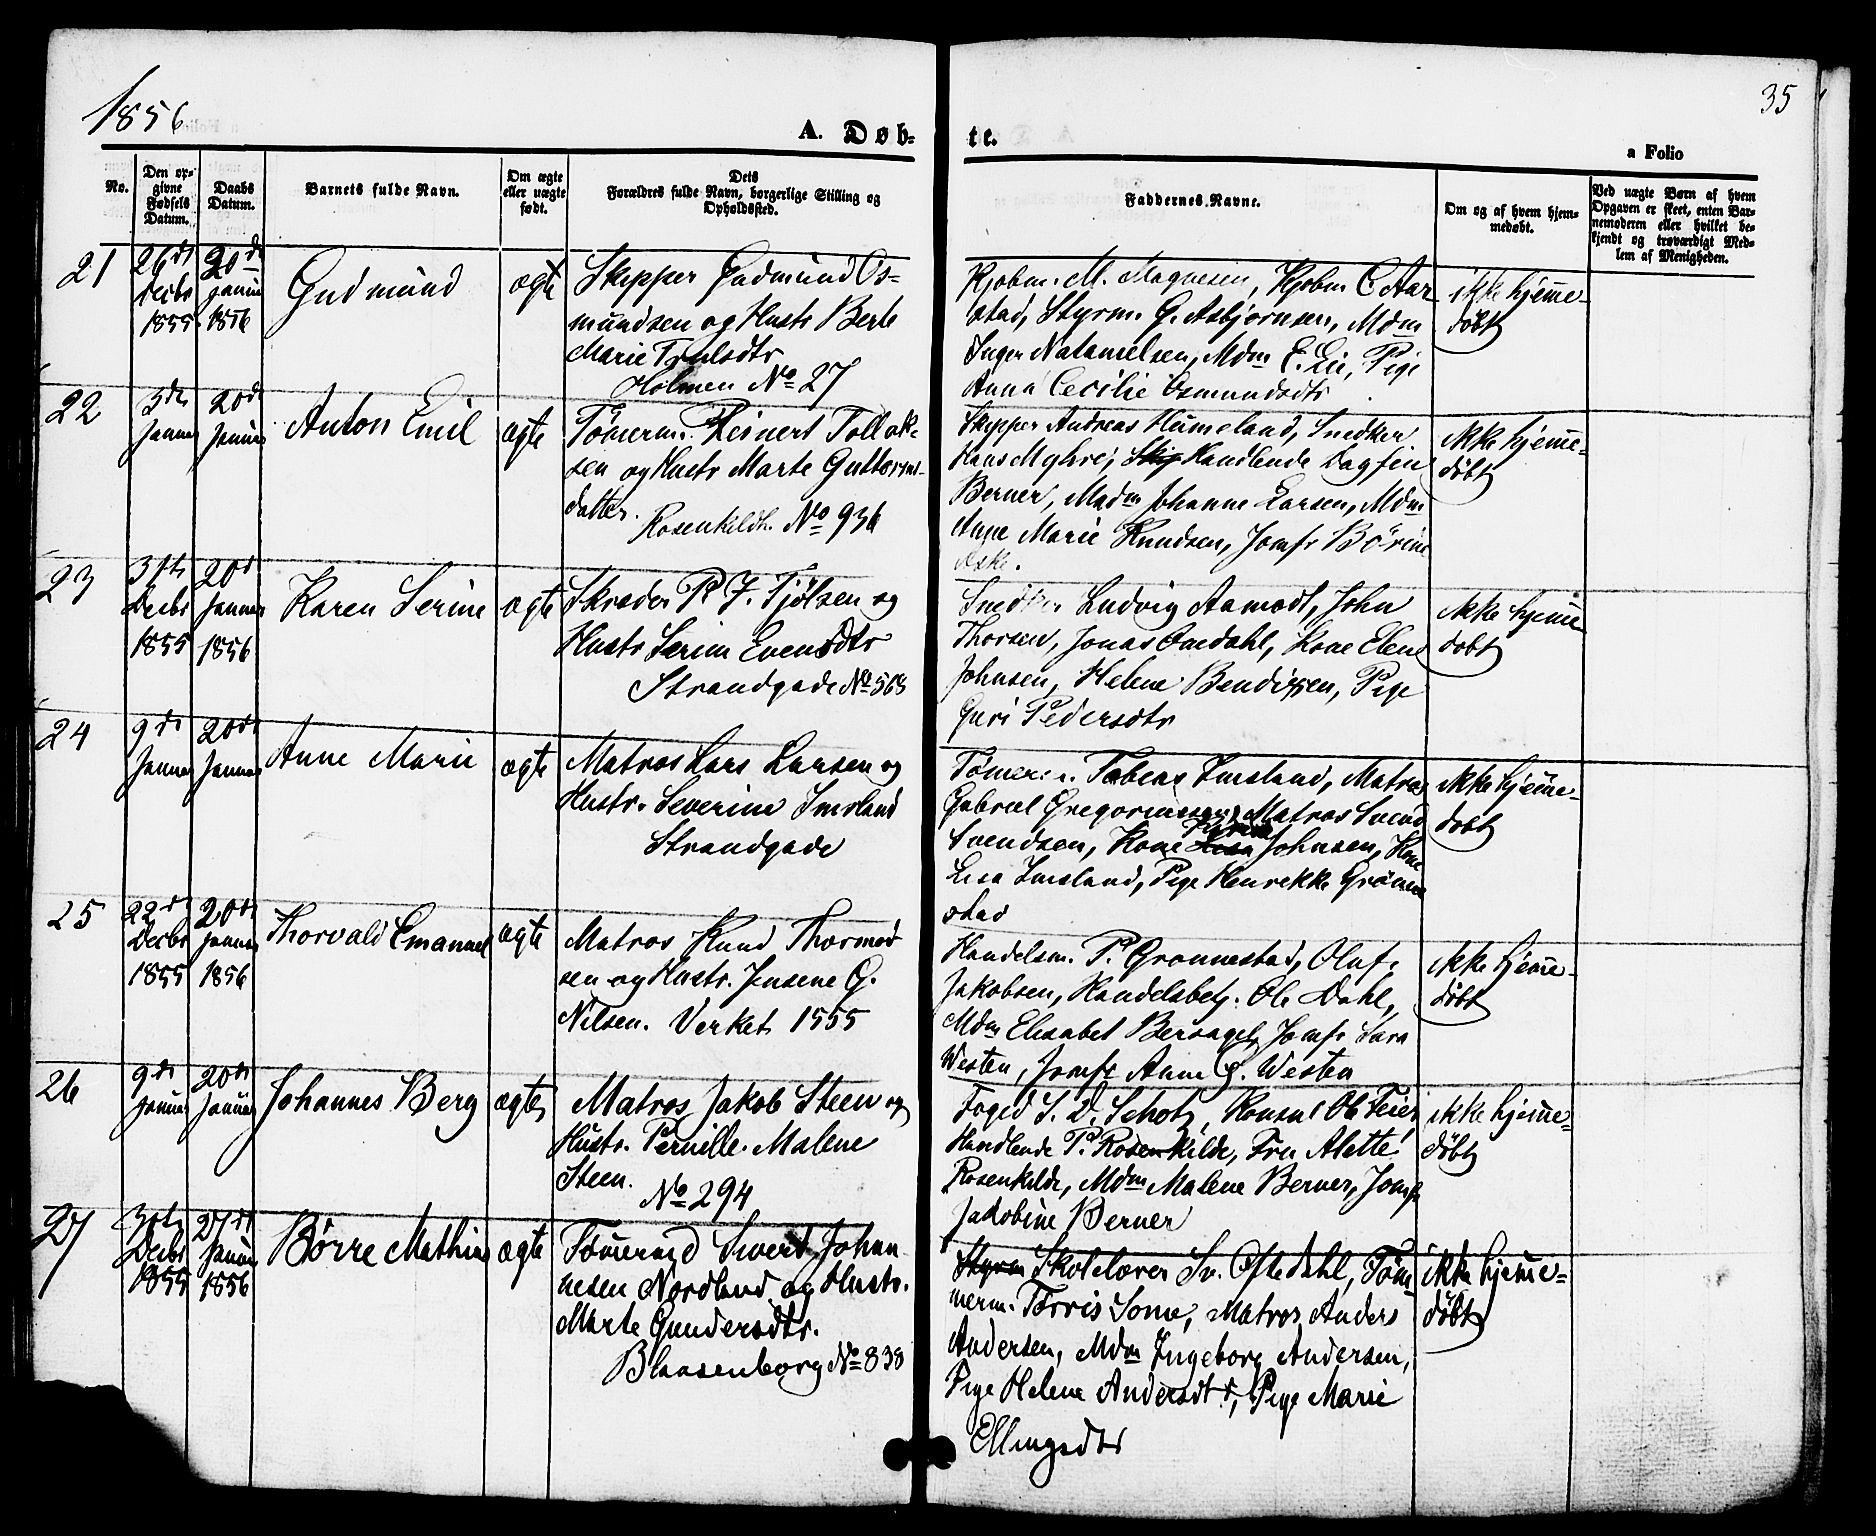 1856
35
A. Døb-
te.
a Folio
No.
Den op-
givne
Fødsels
Datum.
Daabs
Datum.
Barnets fulde Navn.
Om ægte
eller uægte
født.
Dets
Forældres fulde Navn, borgerlige Stilling og
Opholdssted.
Faddernes Navne.
Om og af hvem hjem-
medøbt.
Ved uægte Børn af hvem
Opgaven er skeet, enten Bar-
nemoderen eller hvilket be-
kjendt og troværdigt Med-
lem af Menigheden.
21
26de
Decbr
1855
20de
Januar
1856
Gudmund
ægte
Skipper Gudmund Os-
mundsen og Hustr Berte
Marie Trulsdtr
Holmen No 27
Kjøbm. M. Magnesen, Kjøbm C Aar
stad, Styrm. G. Asbjornsen, Mdm
Inger Natanielsen, Mdm E. Lie, Pige
Anna Cecilie Osmundsdtr
ikke hjemme-
døbt
22
3de
Januar
20de
Januar
Anton Emil
ægte
Tömerm. Reinert Tollak-
sen og Hustr Marte Guttorms-
datter.
Rosenkildt. No 936
Skipper Andreas Hümeland, Snedker
Hans Myhre, Handlende Dagfin
Berner, Madm Johanne Larsen, Mdm
Ane Marie Knudsen, Jomfr Börine
Aske.
ikke hjemme-
døbt
23
31te
Decbr
1855
20de
Januar
1856
Karen Serine
ægte
Skræder P. J. Tjölsen og
Hustr Serine Evensdtr
Strandgade No 568
Snedker Ludvig Aamodt, John
Thorsen, Jonas Omdahl, Kone Elene
Johnsen, Helene Bendixsen, Pige
Guri Pedersdtr
ikke hjemme
døbt
24
9de
Januar
20de
Januar
Anne Marie
ægte
Matros Lars Larsen og
Hustr. Severine Imsland
Strandgade
Tömerm. Tobias Imsland, Matros
Gabriel Gregoriussen, Matros Svend
Svendsen, Kone Johnsen, Kone
Lisa Imsland, Pige Henrekke Grönne
stad
ikke hjemme-
døbt
25
22de
Decbr
1855
20de
Januar
1856
Thorvald Emanuel
ægte
Matros Knud Thormod
sen og Hustr. Jensene G.
Nilsen. Verket 1555
Handelsm. P. Gronnestad, Oluf
Jakobsen, Handelsbetj. Ole Dahl,
Mdm Elisabet Bersagel, Jomfr Sara
Westen, Jomfr Anne G. Westen
ikke hjemme-
døbt
26
9de
Januar
20de
Januar
Johannes Berg
ægte
Matros Jakob Steen og
Hustr. Pernille Malene
Steen.
No 294
Foged S. D. Schotz, Konsul Ole Feier
Handlende P. Rosenkilde, Fru Alette
Rosenkilde, Mdm Malene Berner, Jomfr
Jakobine Berner
ikke hjemme-
døbt
27
Decbr
1855
27de
Januar
1856
Börre Mathias
ægte
Tömermd Sivert Johan
nesen Nordland og Hustr.
Marte Gundersdtr.
Blaasenborg No 838
Styrm Skolelærer Sv. Oftedahl, Töm
merm. Torris Some, Matros Anders
Andersen, Mdm Ingeborg Andersen,
Pige Helene Andersdtr, Pige Marie
Ellingsdtr
ikke hjemme-
døbt